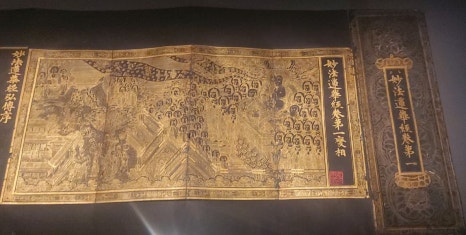 妙法蓮華經卷第一
妙法蓮華經卷第一變相
妙法蓮華經弘傳序